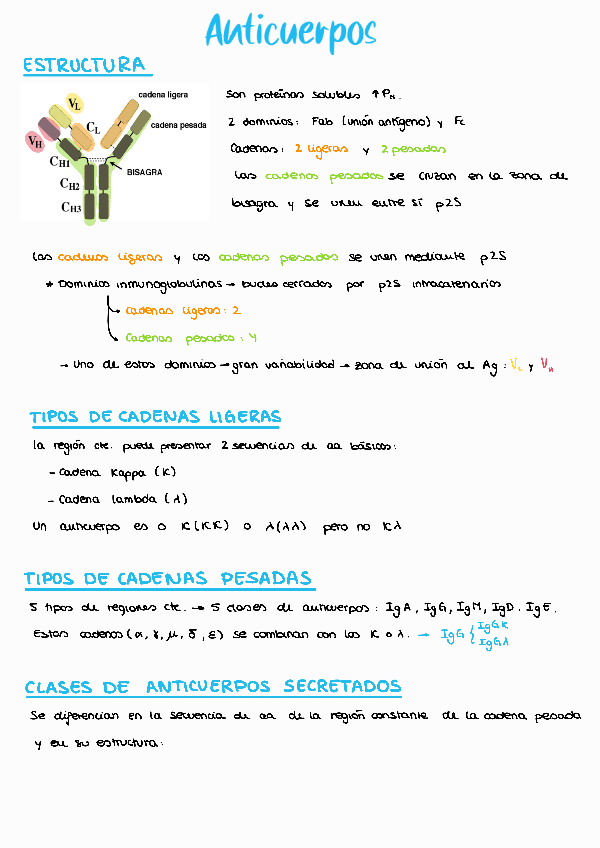 Anticuerpos
ESTRUCTURA
cadena ligera
cadena pesada
BISAGRA
VL
CL
VH
CH1
CH2
CH3
Son proteínas solubles ↑PM.
2 dominios: Fab (unión antígeno) y Fc
Cadenas: 2 ligeras y 2 pesadas
Las cadenas pesadas se cruzan en la zona de
bisagra y se unen entre sí p2S
Las cadenas ligeras y las cadenas pesadas se unen mediante p2S
* Dominios inmunoglobulinas → bucles cerrados por p2S intracatenarios
→ Cadenas ligeras: 2
→ Cadenas pesadas: 4
→ Uno de estos dominios → gran variabilidad → zona de unión al Ag: VL y VH
TIPOS DE CADENAS LIGERAS
la región cte. puede presentar 2 secuencias de aa básicos:
- Cadena Kappa (K)
- Cadena lambda (λ)
Un anticuerpo es o K(KK) o λ(λλ) pero no Kλ
TIPOS DE CADENAS PESADAS
5 tipos de regiones cte. → 5 clases de anticuerpos: IgA, IgG, IgM, IgD, IgE.
Estas cadenas (α, γ, μ, δ, ε) se combinan con las K o λ. → IgG { IgGK
IgGλ
CLASES DE ANTICUERPOS SECRETADOS
Se diferencian en la secuencia de aa de la región constante de la cadena pesada
y en su estructura: